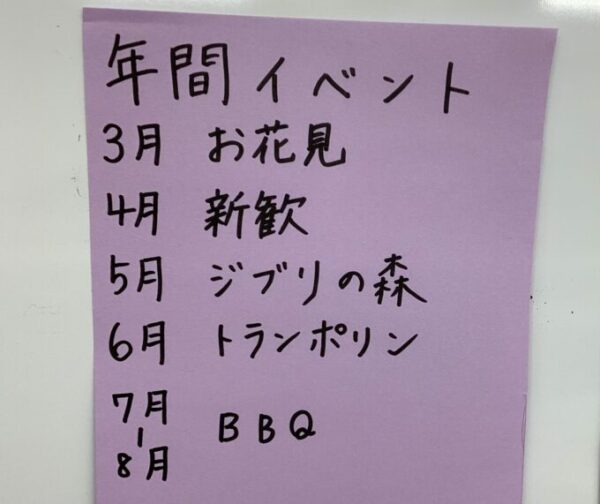 年間イベント
3月 お花見
4月 新歓
5月 ジブリの森
6月 トランポリン
7月
|
8月 BBQ